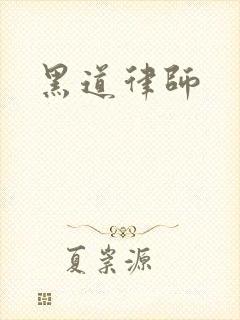 黑道律師
夏崇源